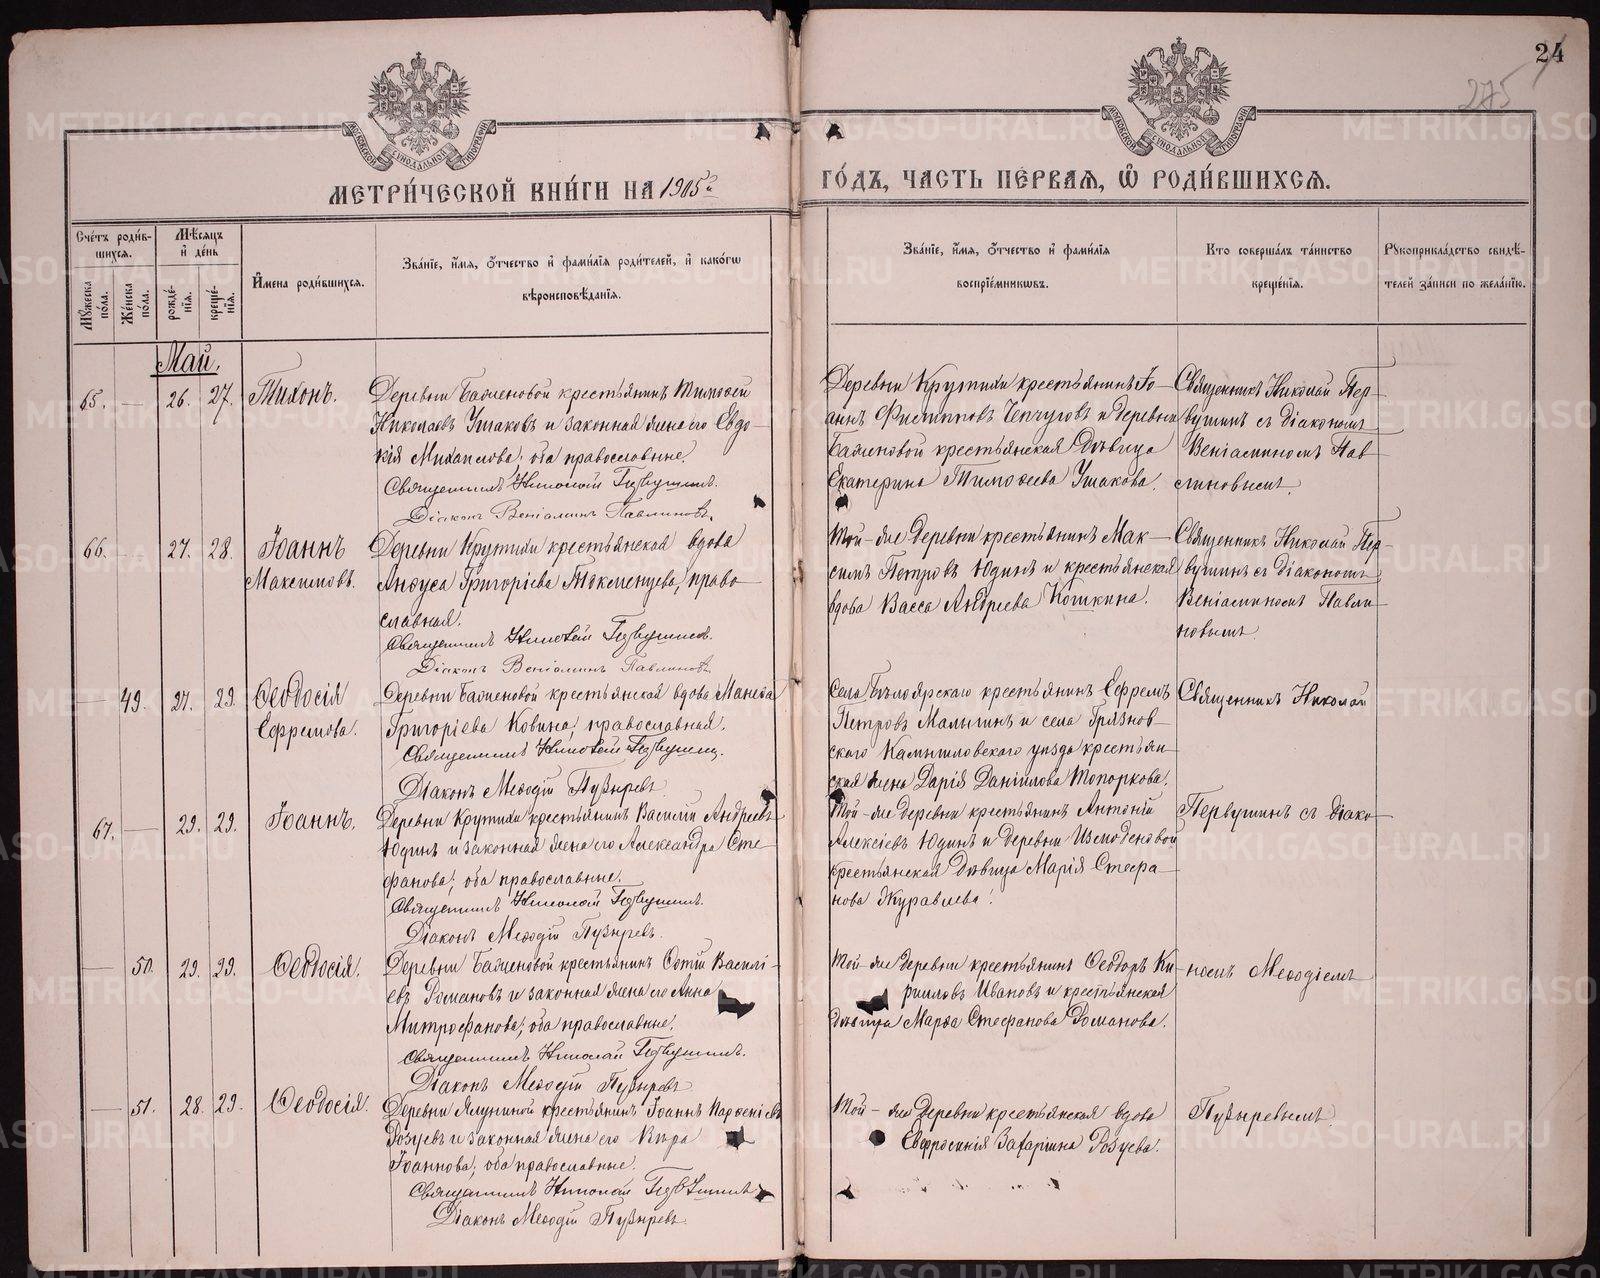 24
275
МОСКОВСКОЙ СѴНОДАЛЬНОЙ ТИПОГРАФІИ
МОСКОВСКОЙ СѴНОДАЛЬНОЙ ТИПОГРАФІИ
МЕТРИ́ЧЕСКОЙ КНИ́ГИ НА 1905й
ГО́ДЪ, ЧАСТЬ ПЕ́РВАЯ, Ѡ РОДИ́ВШИХСЯ.
Сче́тъ роди́в-
шихся.
Мѣсяцъ
и де́нь
Мꙋжеска по́ла.
Же́нска по́ла.
рожде́-
нія.
креще́-
нія.
И́мена роди́вшихся.
Зва́ніе, и́мя, о́тчество и фами́лія роди́телей, и како́гѡ
вѣроисповѣ́данія.
Зва́ніе, и́мя, о́тчество и фами́лія
воспріе́мникѡвъ.
Кто соверша́лъ та́инство
креще́нія.
Рꙋкоприкла́дство свидѣ́-
телей за́писи по жела́нію.
Май.
65. — 26. 27. Тихонъ.
Деревни Баженовой крестьянинъ Тимоѳей
Николаевъ Ушаковъ и законная жена его Евдо-
кія Михаилова, оба православные.
Священникъ Николай Первушинъ.
Діаконъ Веніаминъ Павлиновъ.
Деревни Крутихи крестьянинъ Іо-
аннъ Филипповъ Чепчуговъ и деревни
Баженовой крестьянская дѣвица
Екатерина Тимоѳеева Ушакова.
Священникъ Николай Пер-
вушинъ съ діакономъ
Веніаминомъ Пав-
линовымъ.
66. — 27. 28. Іоаннъ
Максимовъ.
Деревни Крутихи крестьянская вдова
Анѳуса Григоріева Токменцева, право-
славная.
Священникъ Николай Первушинъ.
Діаконъ Веніаминъ Павлиновъ.
Той-же деревни крестьянинъ Мак-
симъ Петровъ Юдинъ и крестьянская
вдова Васса Андреева Кошкина.
Священникъ Николай Пер-
вушинъ съ діакономъ
Веніаминомъ Павли-
новымъ.
— 49. 27. 29. Ѳеодосія
Ефремова.
Деревни Баженовой крестьянская вдова
Григоріева Ковина, православная.
Священникъ Николай Первушинъ.
Діаконъ Меѳодій Пузыревъ.
Села Бѣлоярскаго крестьянинъ Ефремъ
Петровъ Малыгинъ и села Грязнов-
скаго Камышловскаго уѣзда крестьян-
ская жена Дарія Даніилова Топоркова.
Священникъ Николай
67. — 29. 29. Іоаннъ.
Деревни Крутихи крестьянинъ Василій Андреевъ
Юдинъ и законная жена его Александра Сте-
фанова, оба православные.
Священникъ Николай Первушинъ.
Діаконъ Меѳодій Пузыревъ.
Той-же деревни крестьянинъ Антоній
Алексіевъ Юдинъ и деревни Измоденовой
крестьянская дѣвица Марія Стефа-
нова Журавлева.
Первушинъ съ діако-
— 50. 29. 29. Ѳеодосія.
Деревни Баженовой крестьянинъ Фотій Василі-
евъ Романовъ и законная жена его Анна
Митрофанова, оба православные.
Священникъ Николай Первушинъ.
Діаконъ Меѳодій Пузыревъ
Той-же деревни крестьянинъ Ѳеодоръ Ки-
рилловъ Ивановъ и крестьянская
дѣвица Марѳа Стефанова Романова.
номъ Меѳодіемъ
— 51. 28. 29. Ѳеодосія.
Деревни Ялуниной крестьянинъ Іоаннъ Парѳеніевъ
Розуевъ и законная жена его Вѣра
Іоаннова, оба православные.
Священникъ Николай Первушинъ
Діаконъ Меѳодій Пузыревъ.
Той-же деревни крестьянская вдова
Евфросинія Захаріина Розуева.
Пузыревымъ.
METRIKI.GASO-URAL.RU